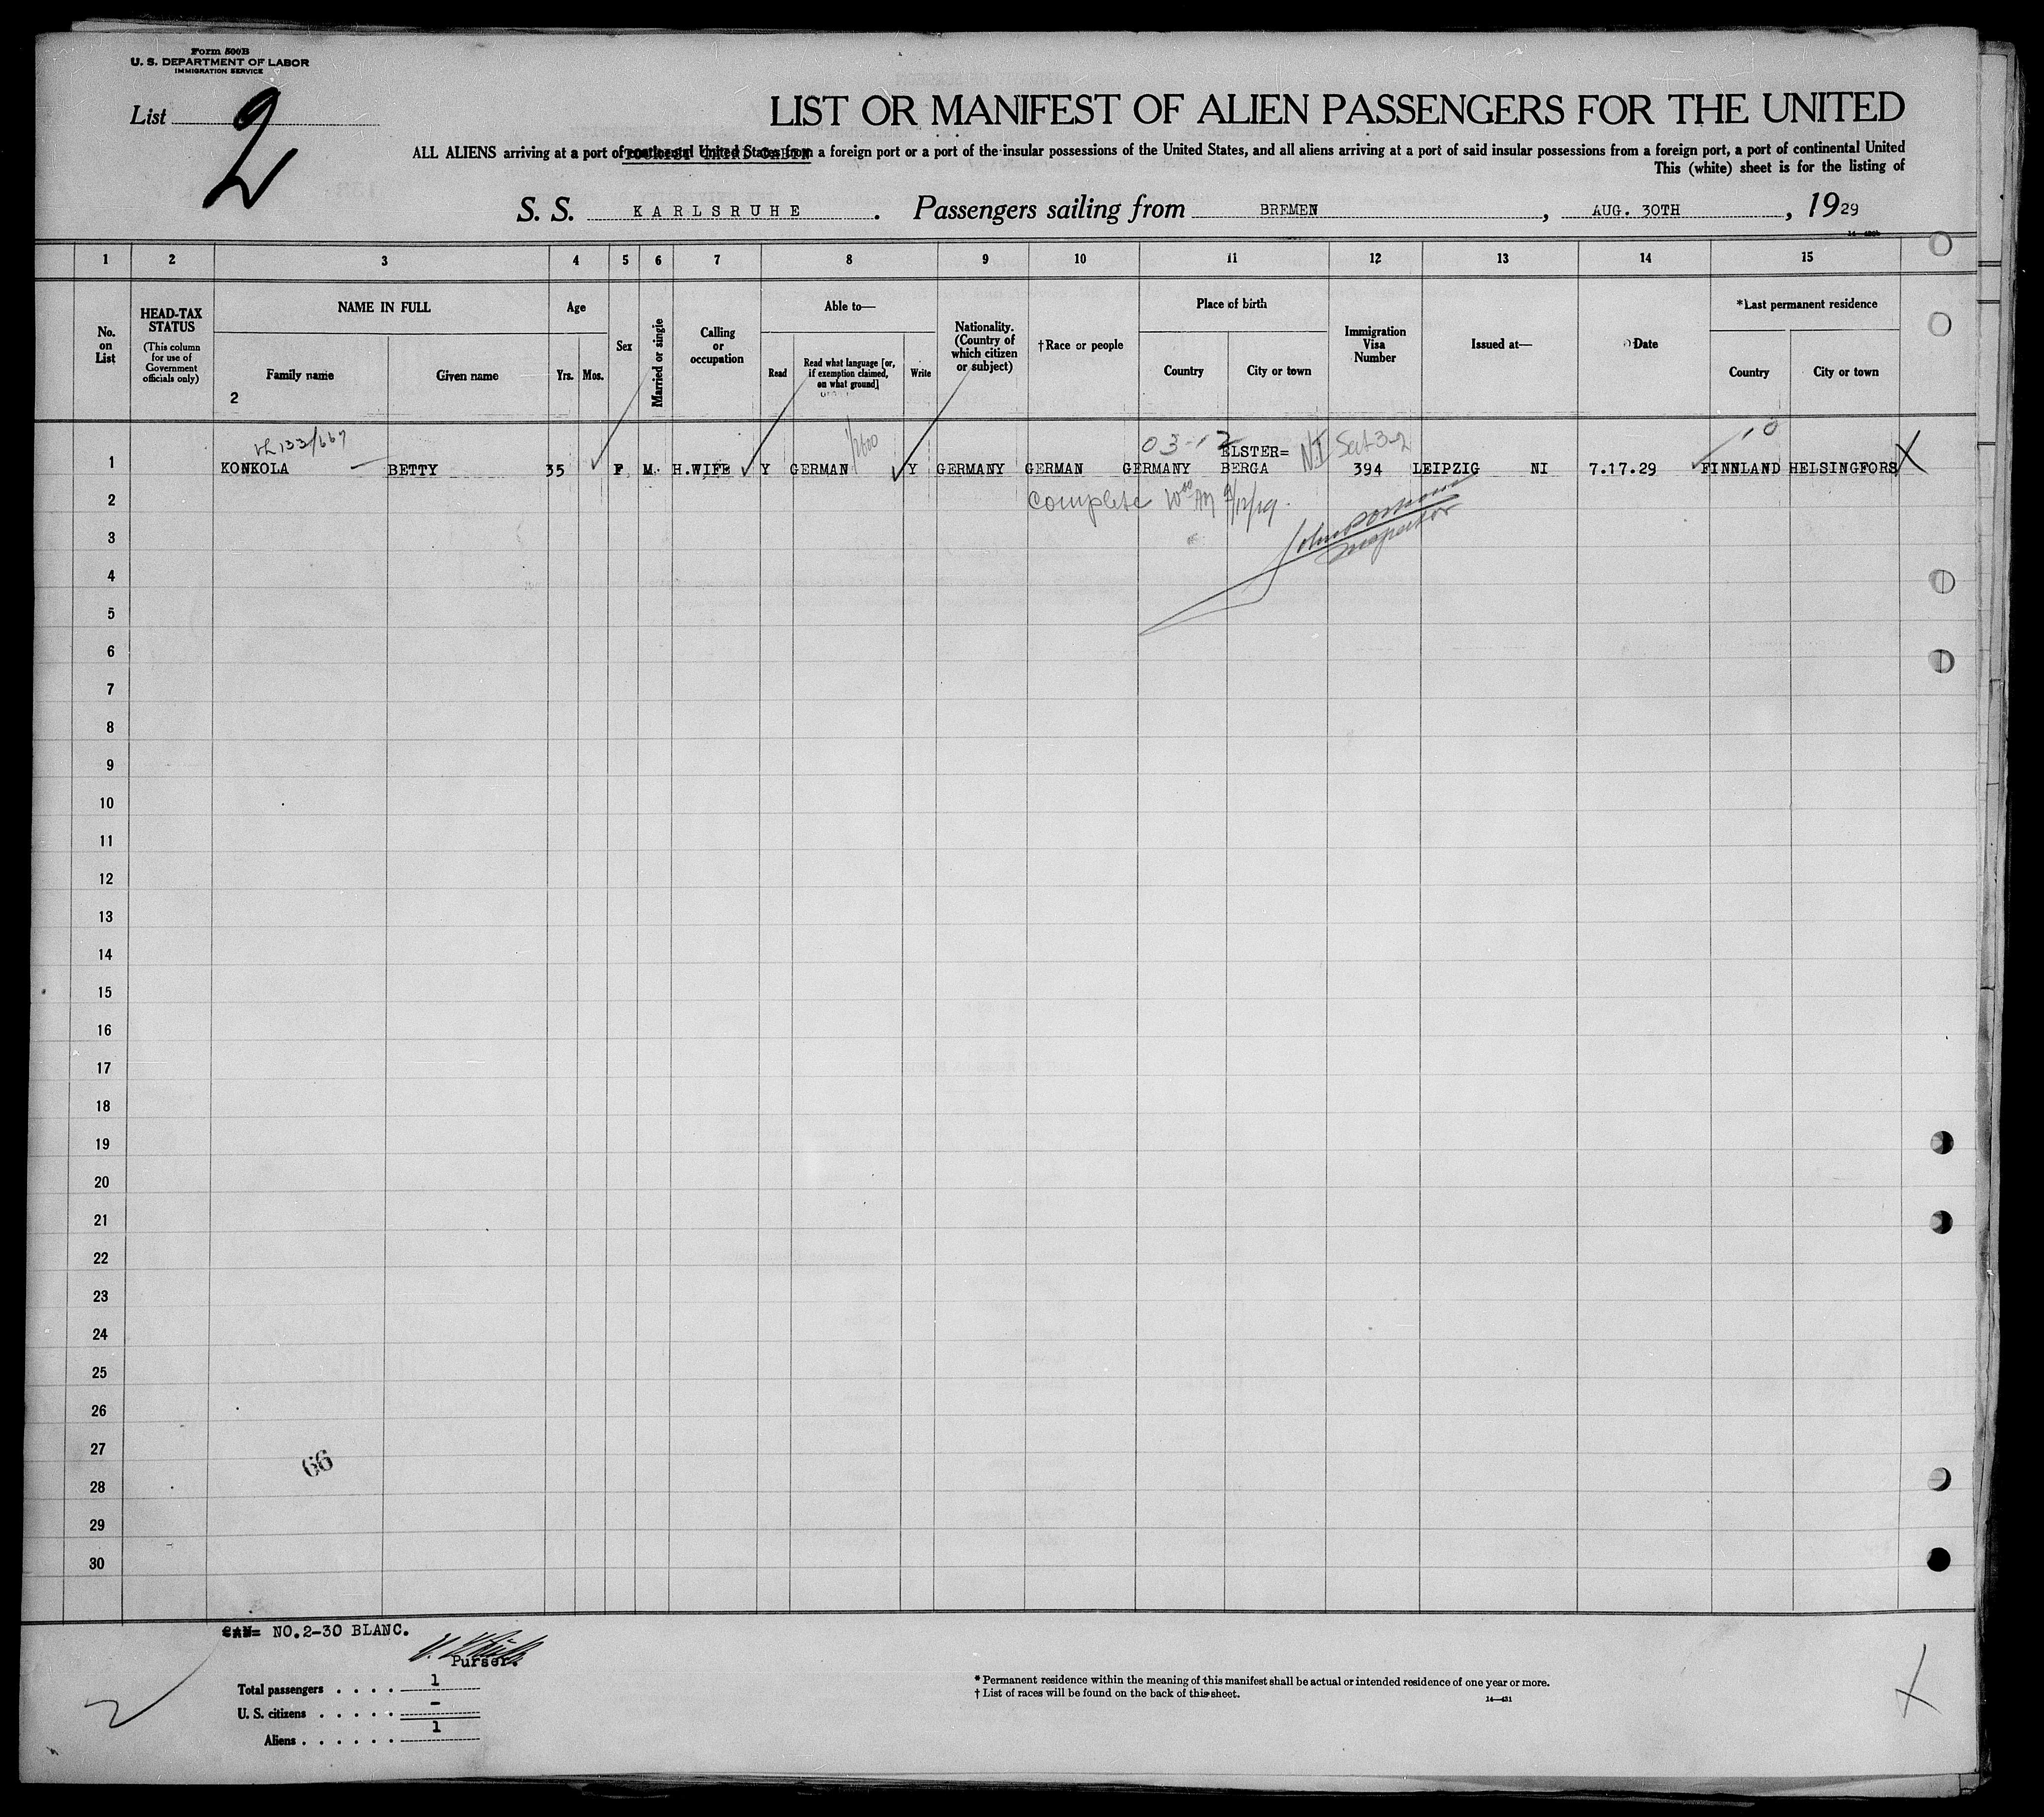 Form 500B
U. S. DEPARTMENT OF LABOR
IMMIGRATION SERVICE
List 2
LIST OR MANIFEST OF ALIEN PASSENGERS FOR THE UNITED
ALL ALIENS arriving at a port of continental United States from a foreign port or a port of the insular possessions of the United States, and all aliens arriving at a port of said insular possessions from a foreign port, a port of continental United
This (white) sheet is for the listing of
S. S. KARLSRUHE. Passengers sailing from BREMEN, AUG. 30TH, 1929
1 2 3 4 5 6 7 8 9 10 11 12 13 14 15
No. on List
HEAD-TAX STATUS
(This column for use of Government officials only)
NAME IN FULL
Family name
2
Given name
Age
Yrs. Mos.
Sex
Married or single
Calling or occupation
Able to—
Read
Read what language [or, if exemption claimed, on what ground]
Write
Nationality. (Country of which citizen or subject)
†Race or people
Place of birth
Country
City or town
Immigration Visa Number
Issued at—
Date
*Last permanent residence
Country
City or town
133/667
03-12 ELSTER= NI
1 KONKOLA BETTY 35 F M H.WIFE Y GERMAN Y GERMANY GERMAN GERMANY BERGA 394 LEIPZIG NI 7.17.29 FINNLAND HELSINGFORS X
2 Complete
Inspector
3
4
5
6
7
8
9
10
11
12
13
14
15
16
17
18
19
20
21
22
23
24
25
26
27
66
28
29
30
NO.2-30 BLANC.
Purser.
Total passengers . . . . 1
U. S. citizens . . . . . –
Aliens . . . . . . 1
* Permanent residence within the meaning of this manifest shall be actual or intended residence of one year or more.
† List of races will be found on the back of this sheet.
14—431
X